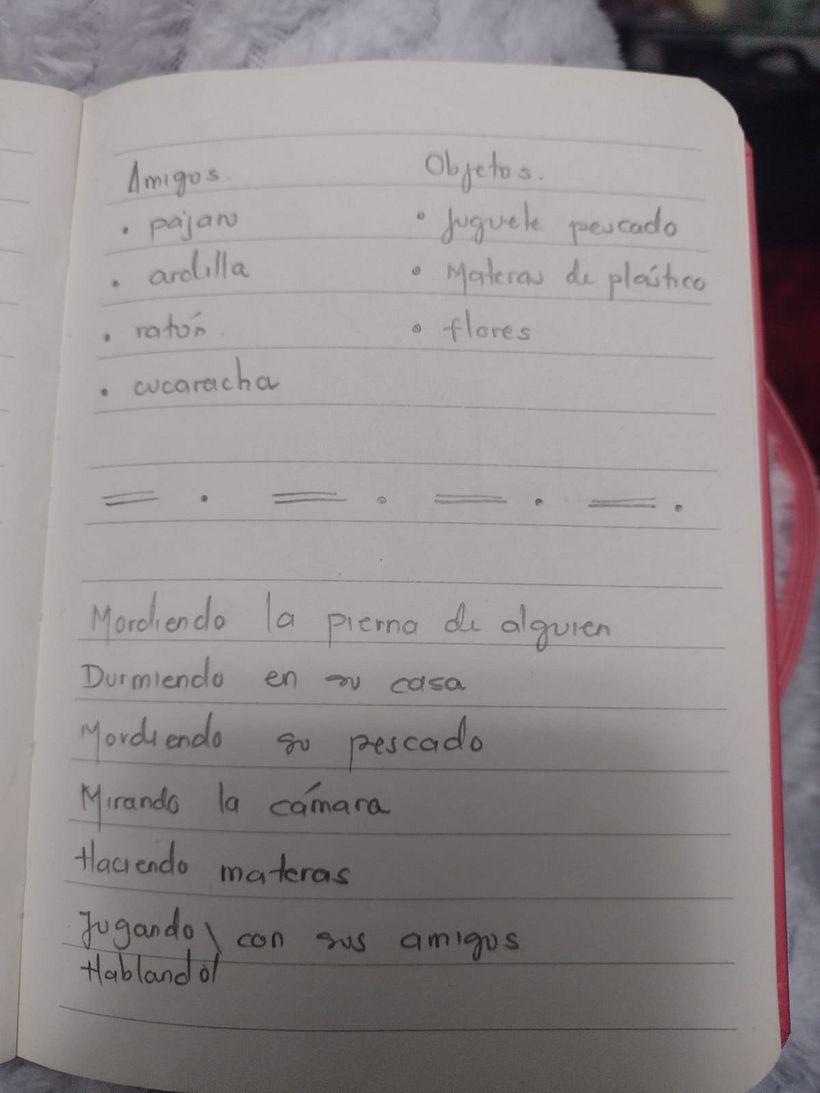 Amigos. Objetos.
• pájaro • juguete pescado
• ardilla • Materas de plástico
• ratón • flores
• cucaracha
= . = . = . = .
Mordiendo la pierna de alguien
Durmiendo en su casa
Mordiendo su pescado
Mirando la cámara
Haciendo materas
Jugando \ con sus amigos
Hablando /